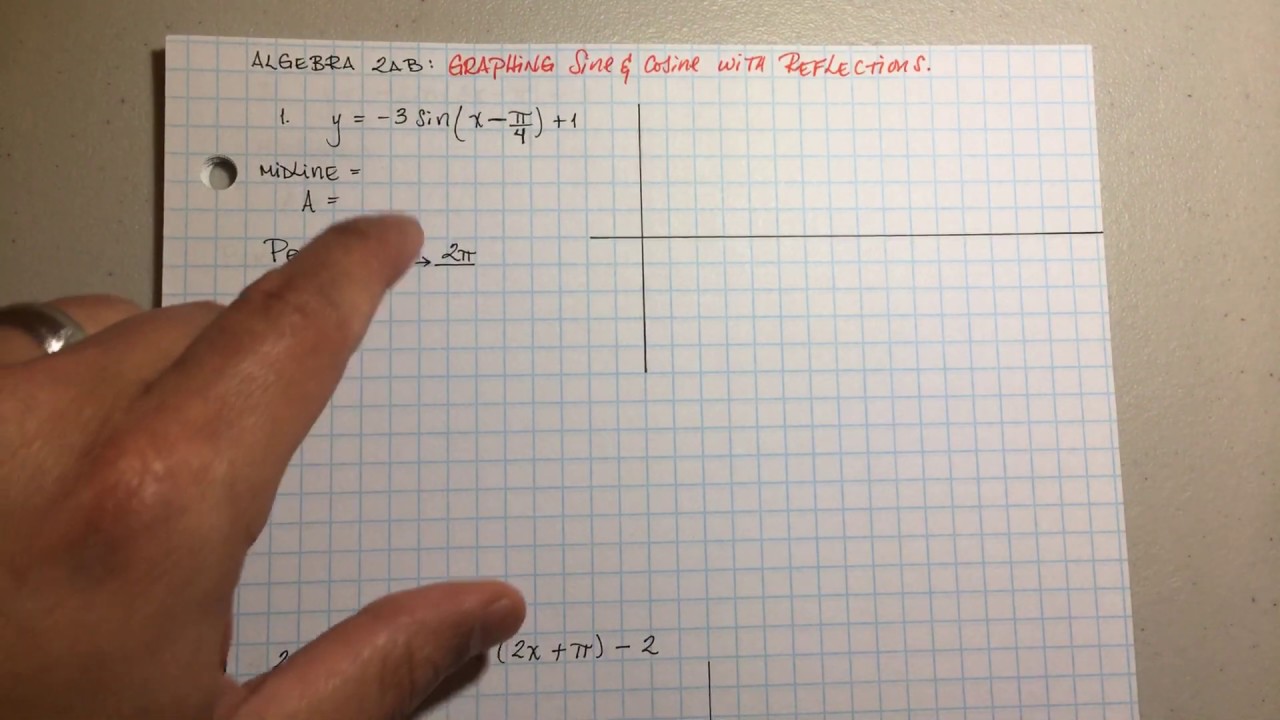 ALGEBRA 2AB: GRAPHING Sine & Cosine WITH REFLECTIONS.
1. y = -3 Sin(x - π/4) + 1
MIDLINE =
A =
→ 2π
(2x + π) - 2